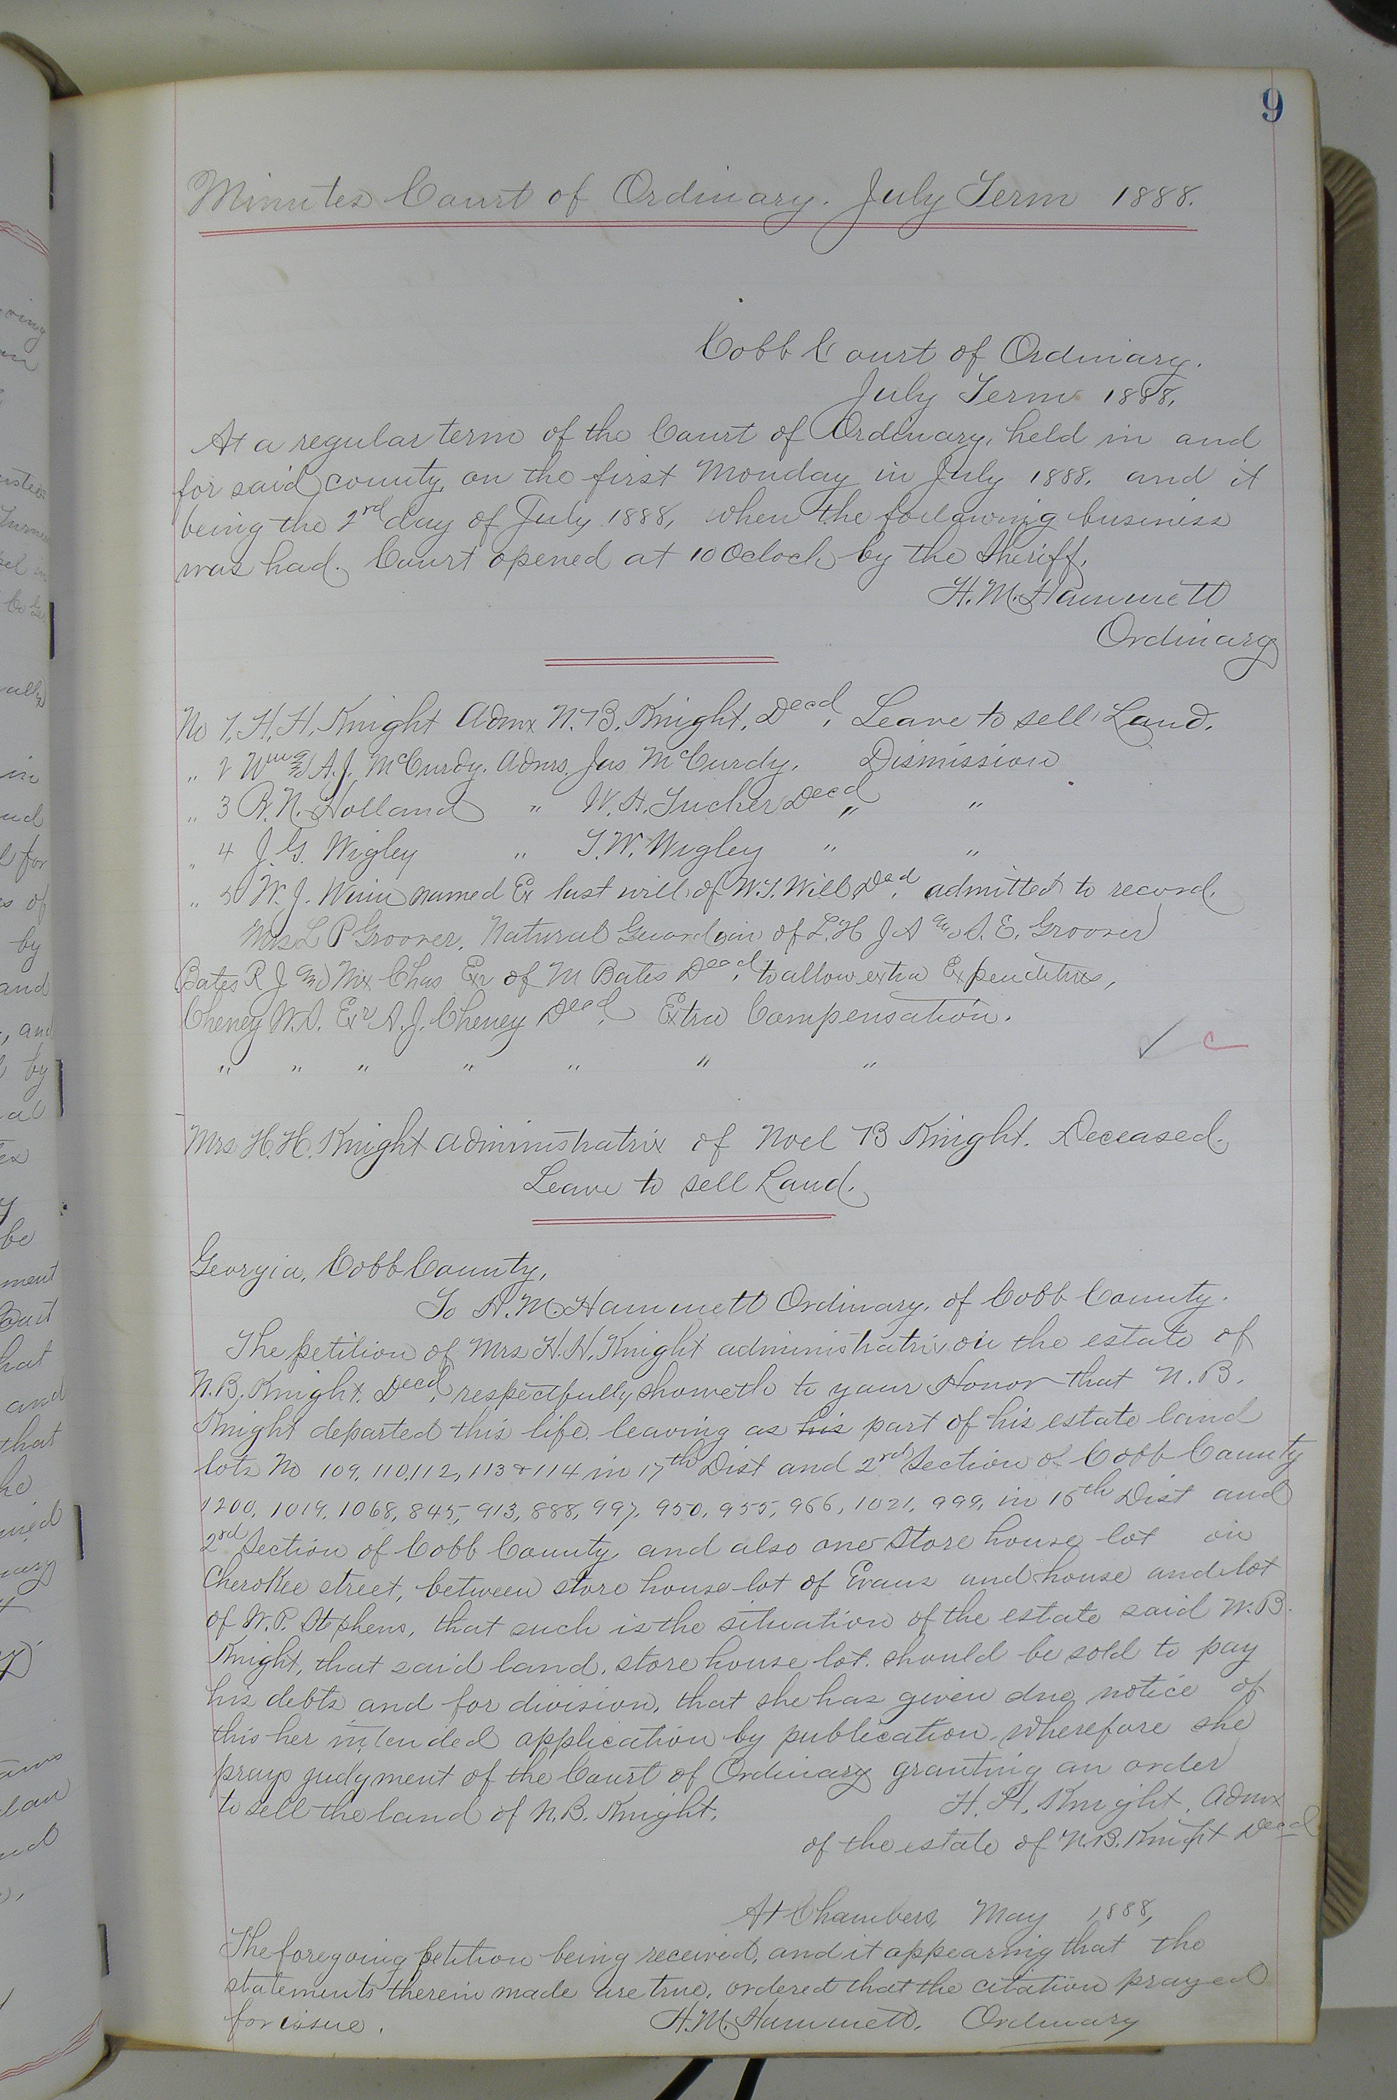 9
Minutes Court of Ordinary. July Term 1888.
Cobb Court of Ordinary.
July Term 1888.
At a regular term of the Court of Ordinary, held in and
for said county, on the first Monday in July 1888. and it
being the 2nd day of July 1888, when the following business
was had. Court opened at 10 Oclock by the Sheriff.
H. M. Hammett
Ordinary
No 1, H. H. Knight Admx N. B. Knight, Decd, Leave to sell Land.
" 2 Wm & A. J. McCurdy. Admrs. Jas McCurdy. Dismission
" 3 R. N. Holland " W. H. Tucker Decd " "
" 4 J. G. Wigley " T. W. Wigley " "
" 5 W. J. Winn named Ex last will of W. T. Will Decd, admitted to record.
Mrs L P Groover, Natural Guardian of L. H J A & S. E. Groover
Bates R J & Mix Chas Exr of M Bates Decd, to allow extra Expenditures,
Cheney W. S. Exr A. J. Cheney Decd, Extra Compensation.
" " " " " " "
Mrs H. H. Knight administratrix of Noel B Knight. Deceased.
Leave to sell Land.
Georgia, Cobb County,
To H. M Hammett Ordinary, of Cobb County.
The petition of Mrs H. H. Knight administratrix on the estate of
N. B. Knight, Decd, respectfully showeth to your Honor that N. B.
Knight departed this life leaving as his part of his estate land
lots No 109, 110, 112, 113 & 114 in 17th Dist and 2nd Section of Cobb County
1200, 1019, 1068, 845, 913, 888, 997, 950, 955, 966, 1021, 999, in 16th Dist and
2nd Section of Cobb County, and also one Store house lot on
Cherokee street, between store house lot of Evans and house and lot
of W. P. Stephens, that such is the situation of the estate said N. B.
Knight, that said land, store house lot. should be sold to pay
his debts and for division, that she has given due notice of
this her intended application by publication, Wherefore she
prays judgment of the Court of Ordinary granting an order
to sell the land of N. B. Knight.
H. H. Knight, Admx
of the estate of N. B. Knight Decd
At Chambers, May 1888,
The foregoing petition being received, and it appearing that the
statements therein made are true, ordered that the citation prayed
for issue.
H. M. Hammett, Ordinary